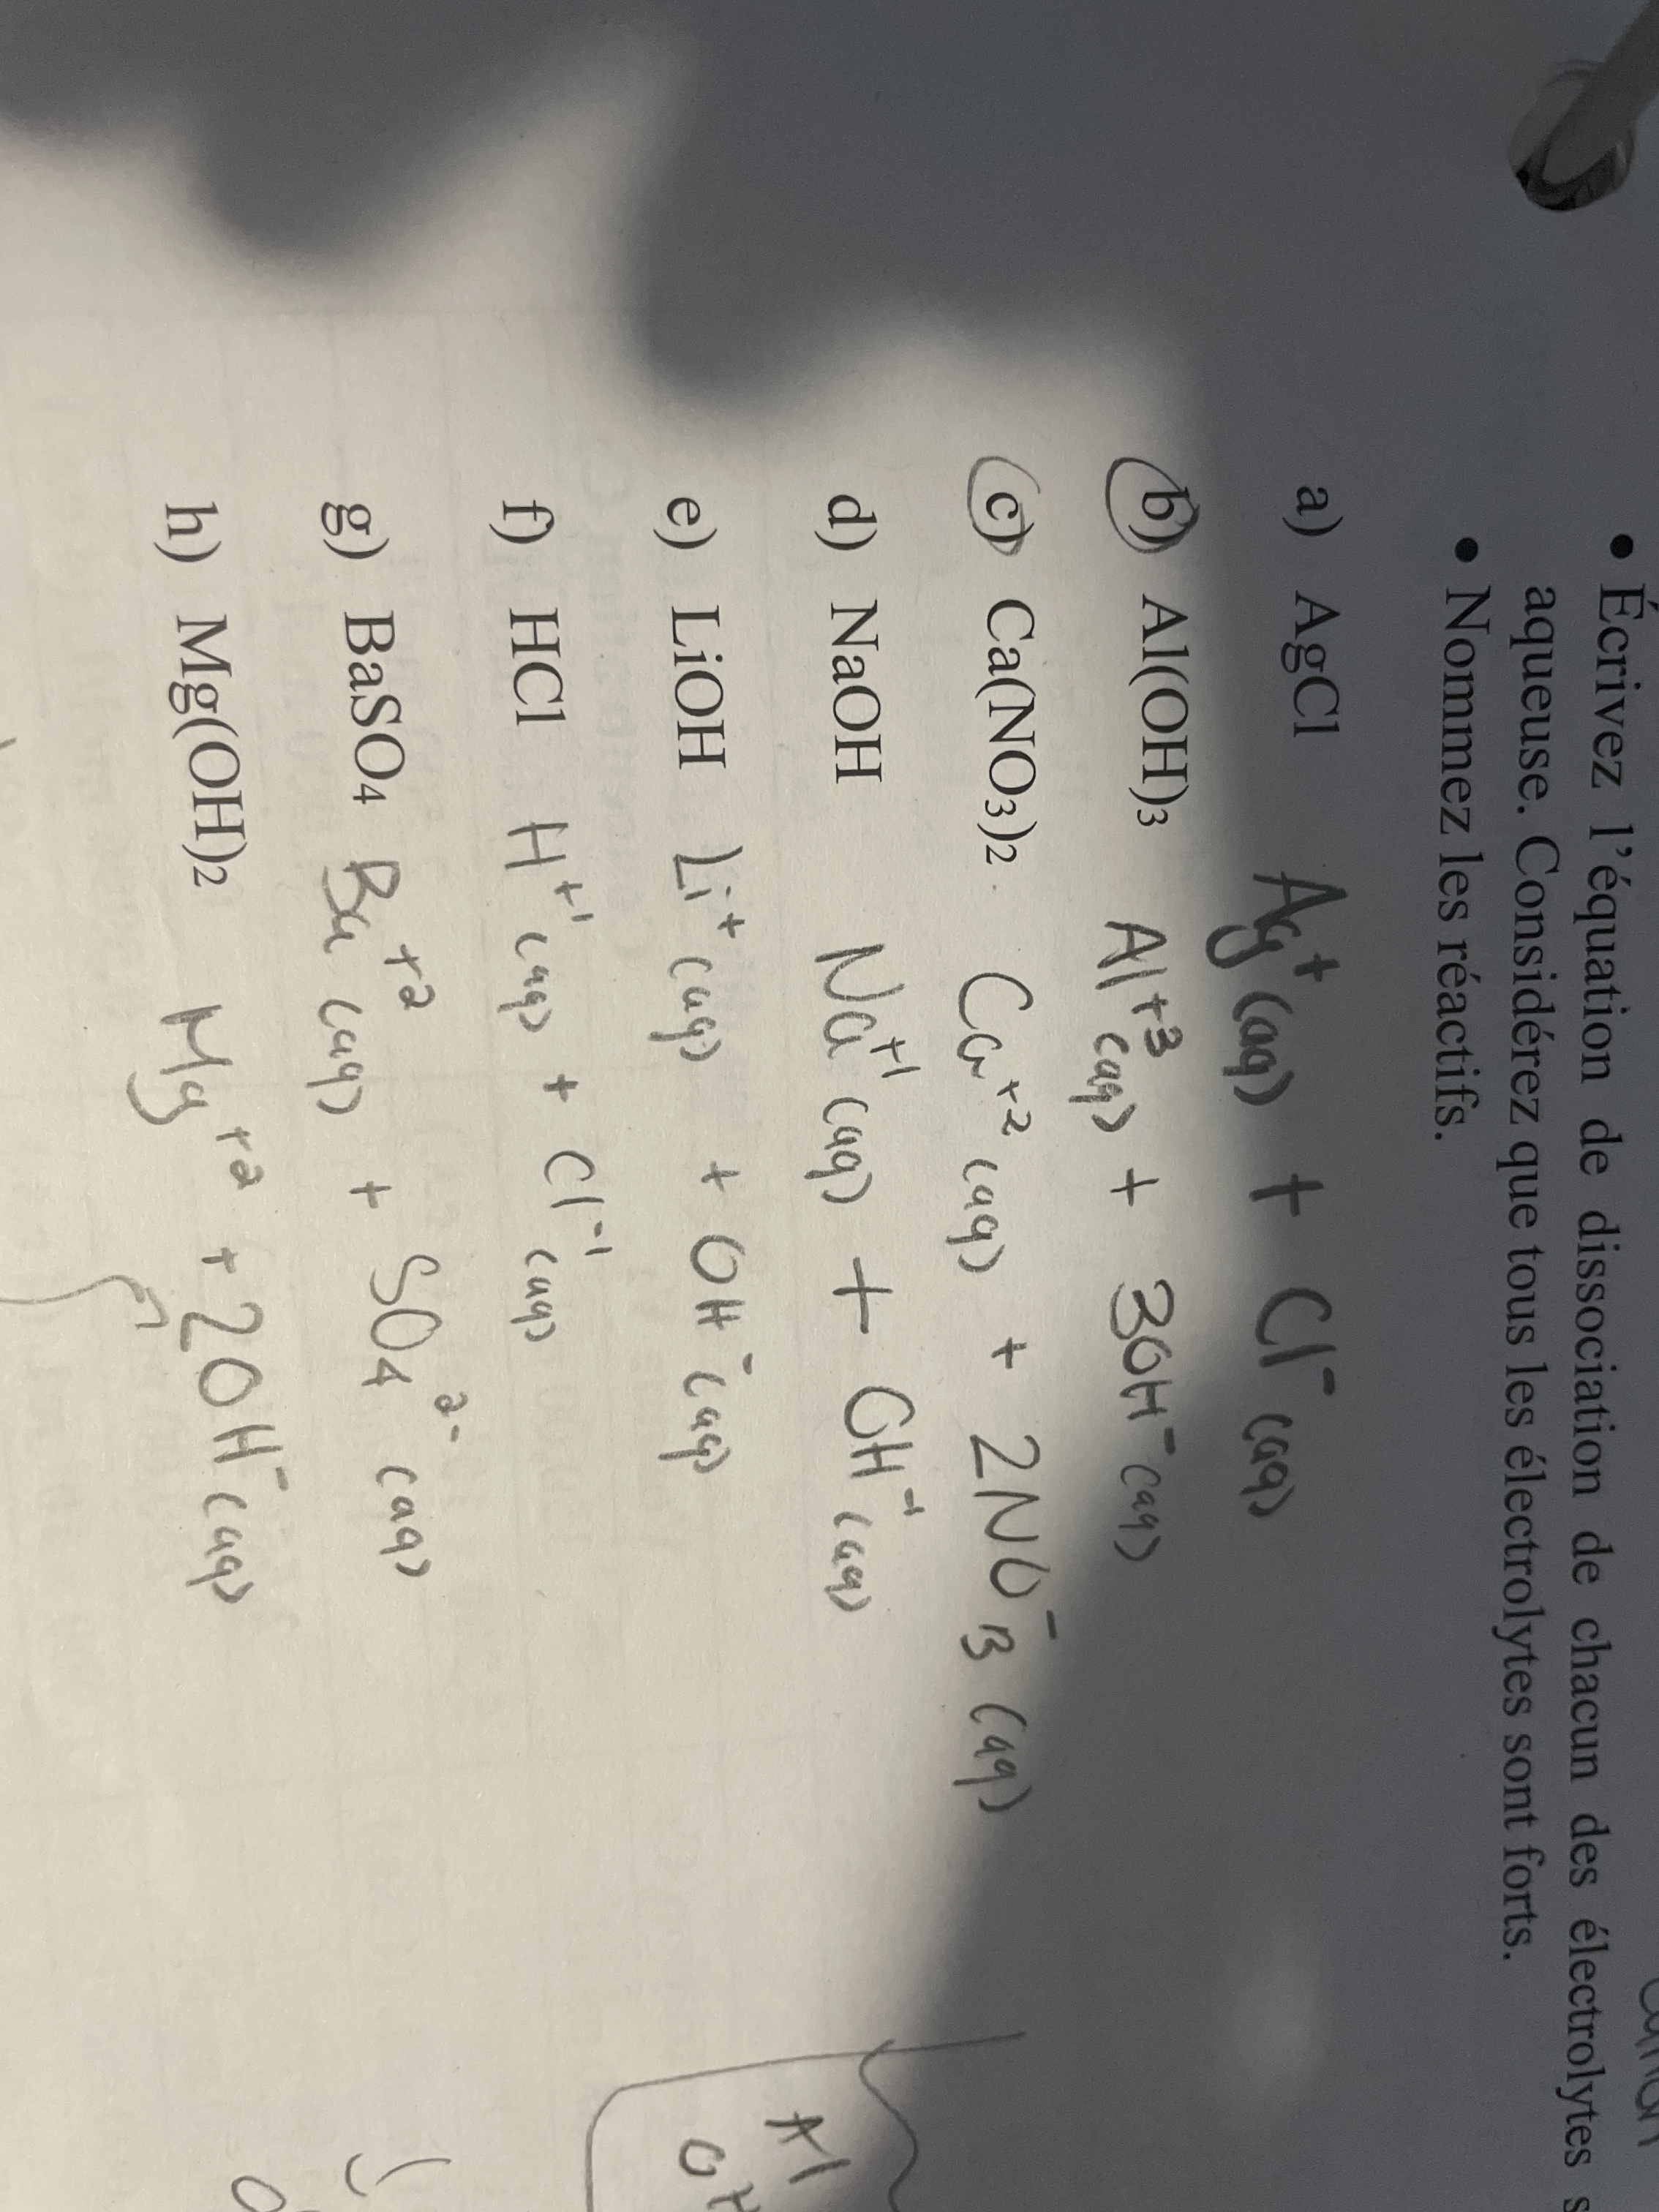 • Écrivez l'équation de dissociation de chacun des électrolytes
aqueuse. Considérez que tous les électrolytes sont forts.
• Nommez les réactifs.
a) AgCl Ag⁺(aq) + Cl⁻(aq)
b) Al(OH)₃ Al⁺³(aq) + 3OH⁻(aq)
c) Ca(NO₃)₂ Ca⁺²(aq) + 2NO⁻₃(aq)
d) NaOH Na⁺¹(aq) + OH⁻¹(aq)
e) LiOH Li⁺(aq) + OH⁻(aq)
f) HCl H⁺¹(aq) + Cl⁻¹(aq)
g) BaSO₄ Ba⁺²(aq) + SO₄²⁻(aq)
h) Mg(OH)₂ Mg⁺² + 2OH⁻(aq)
Al
OH